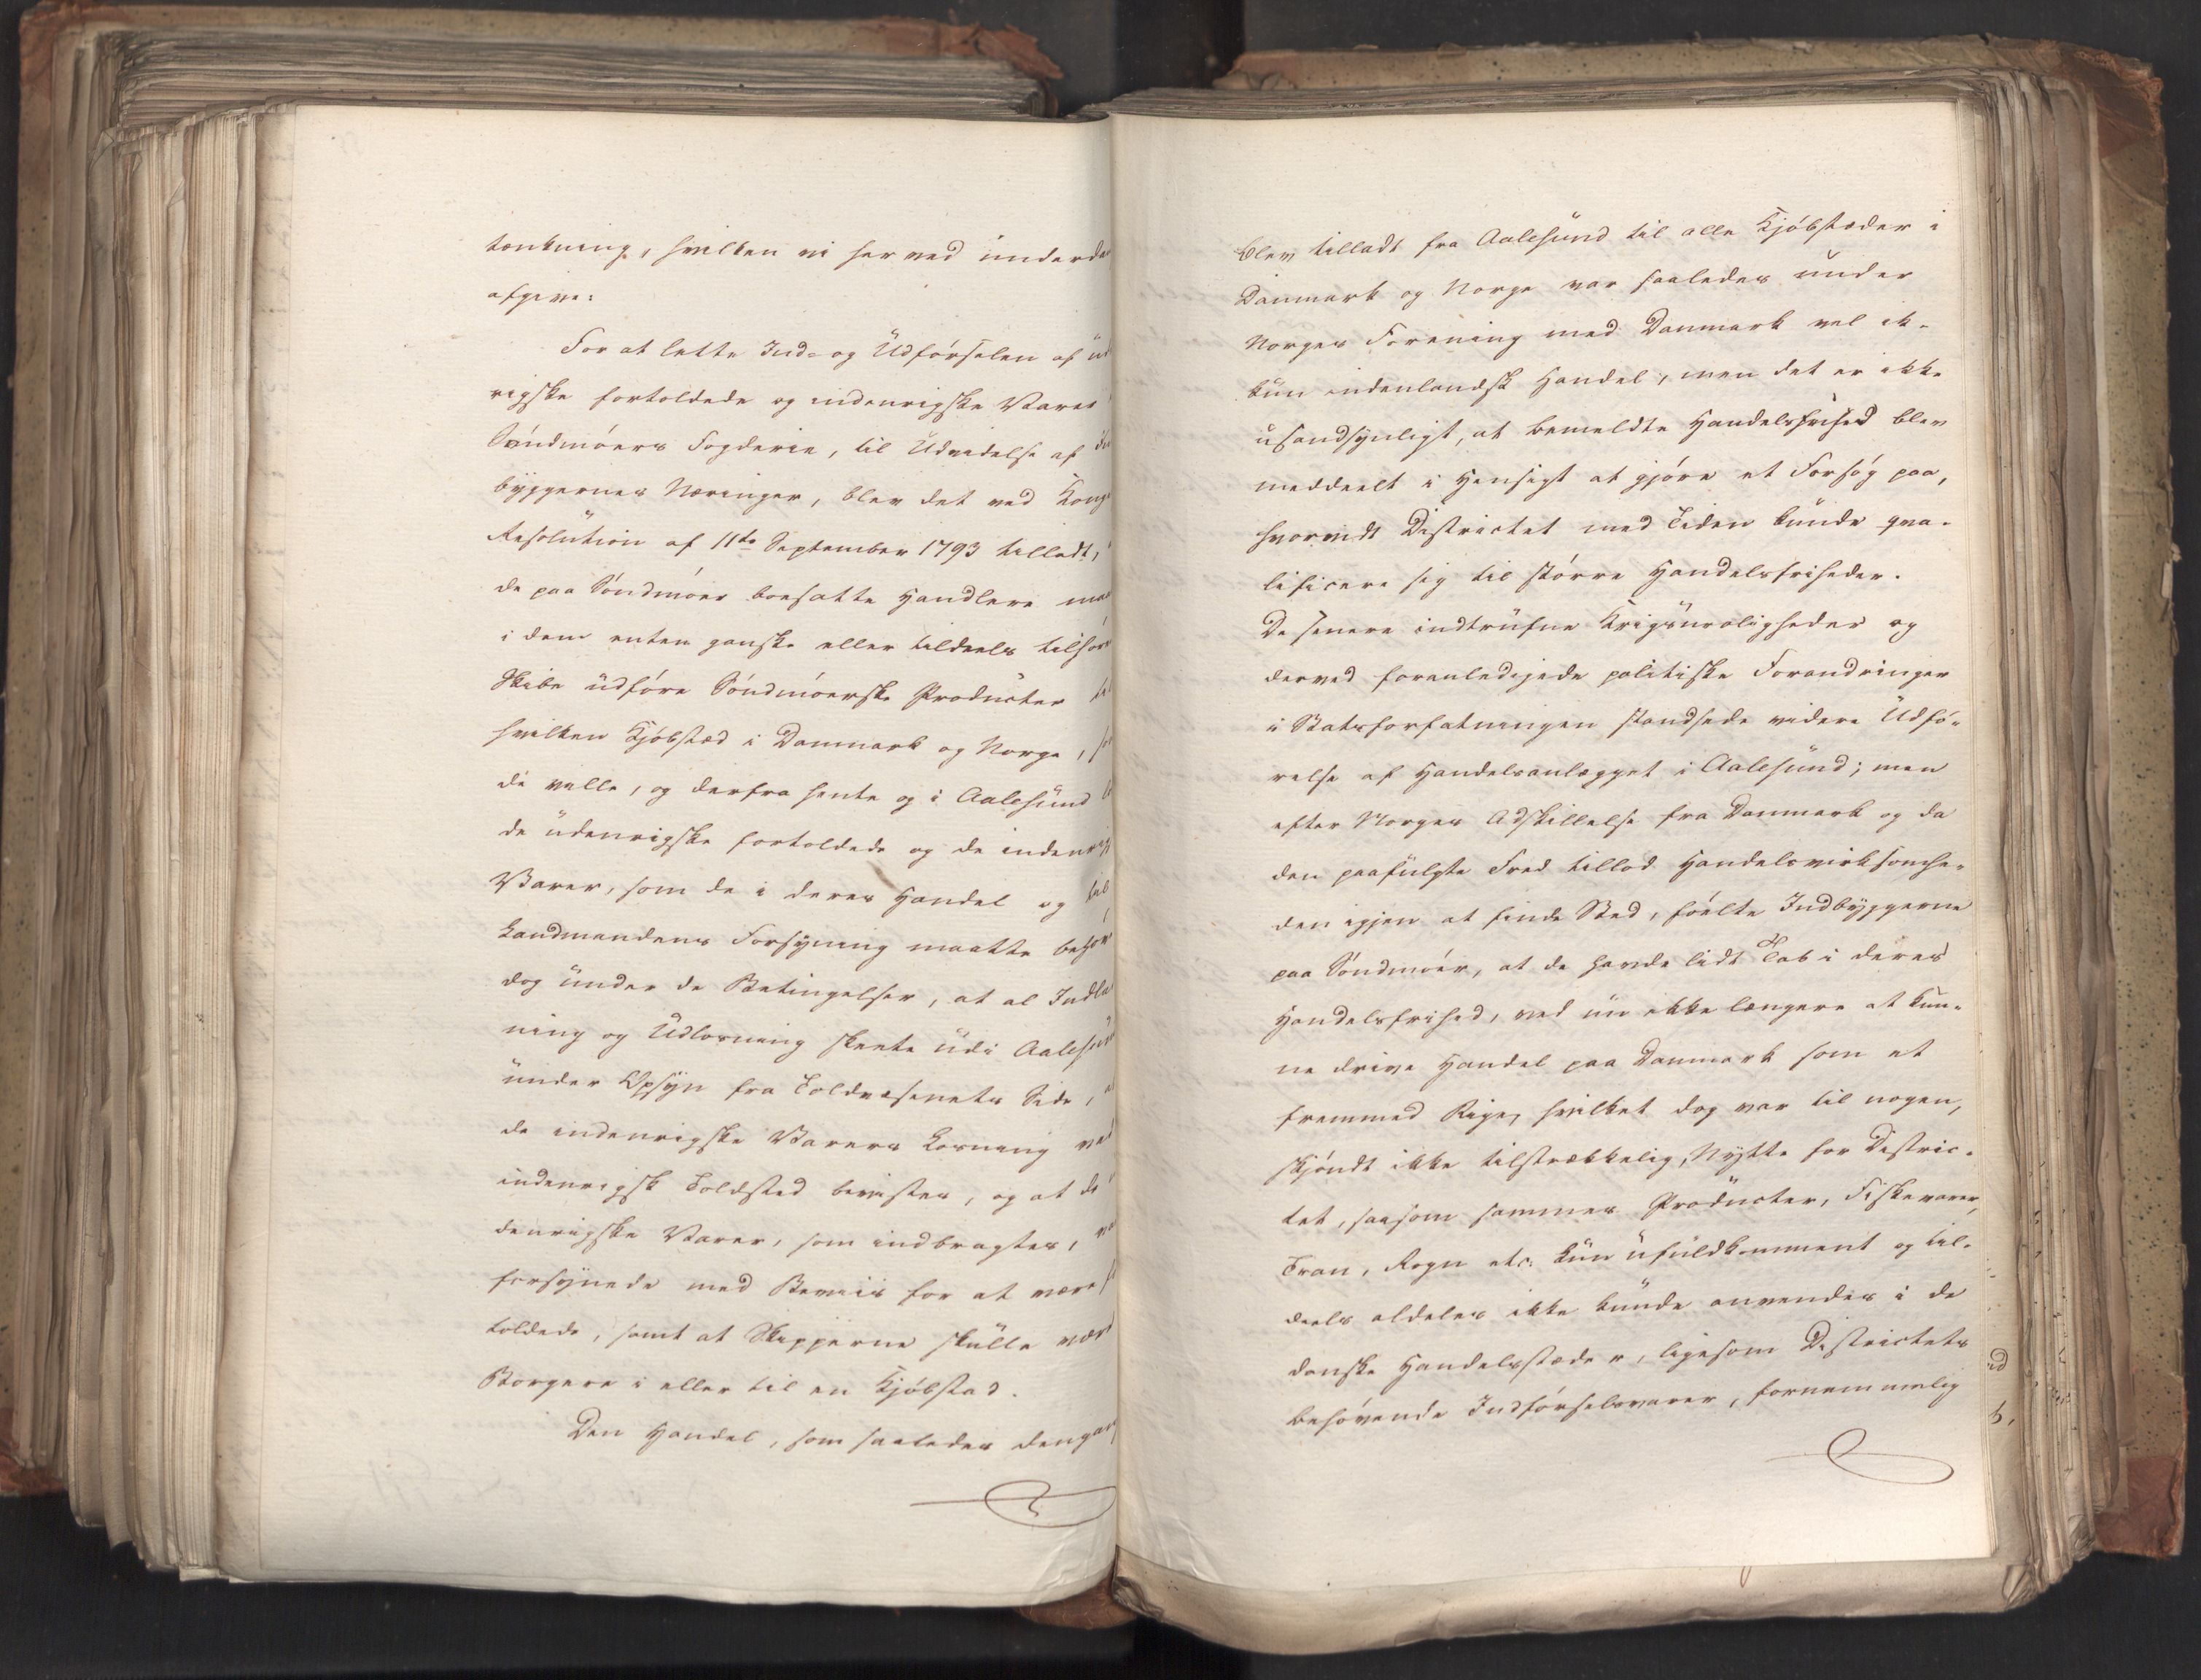 tænkning, hvilken vi herved underda
afgive:
For at lette Ind- og Udførselen af ud
rigske fortoldede og indenrigske Varer
Søndmøers Fogderie, til Udvidelse af In
byggernes Næringer, blev det ved Konge
Resolution af 11te September 1793 tilladt,
de paa Søndmøer boesatte Handlere maa
i dem enten ganske eller tildeels tilhør
Skibe udføre Søndmøerske Producter til
hvilken Kjøbstæd i Danmark og Norge, so
de ville, og derfra hente og i Aalesund lo
de udenrigske fortoldede og de indenrig
Varer, som de i deres Handel og til
Landmandens Forsyning maatte behøv
dog under de Betingelser, at al Indla
ning og Udlosning skeete udi Aalesun
under Opsyn fra Toldvæsenets Side, a
de indenrigske Varers Losning ved
indenrigsk Toldsted bevistes, og at de
denrigske Varer, som indbragtes, va
forsynede med Beviis for at være fo
toldede, samt at Skipperne skulle være
Borgere i eller til en Kjøbstad.
Den Handel, som saaledes dengang
blev tilladt fra Aalesund til alle Kjøbstæder i
Danmark og Norge var saaledes under
Norges Forening med Danmark vel ik-
kun indenlandsk Handel, men det er ikke
usandsynligt, at bemeldte Handelsfrihed blev
meddeelt i Hensigt at gjøre et Forsøg paa,
hvorvidt Districtet med Tiden kunde qva-
lificere sig til større Handelsfriheder.
De senere indtrufne Krigsuroligheder og
derved foranledigede politiske Forandringer
i Statsforfatningen standsede videre Udfø-
relse af Handelsanlægget i Aalesund; men
efter Norges Adskillelse fra Danmark og da
den paafulgte Fred tillod Handelsvirksomhe-
den igjen at finde Sted, føelte Indbyggerne
paa Søndmøer, at de havde lidt Tab i deres
Handelsfrihed, ved nu ikke længere at kun-
ne drive Handel paa Danmark som et
fremmed Rige, hvilket dog var til nogen,
skjøndt ikke tilstrækkelig, Nytte for Distric-
tet, saasom sammes Producter, Fiskevarer,
Tran, Rogn etc. kun ufuldkomment og til-
deels aldeles ikke kunde anvendes i de
danske Handelsstæder, ligesom Districtets
behøvende Indførselsvarer, fornemmelig